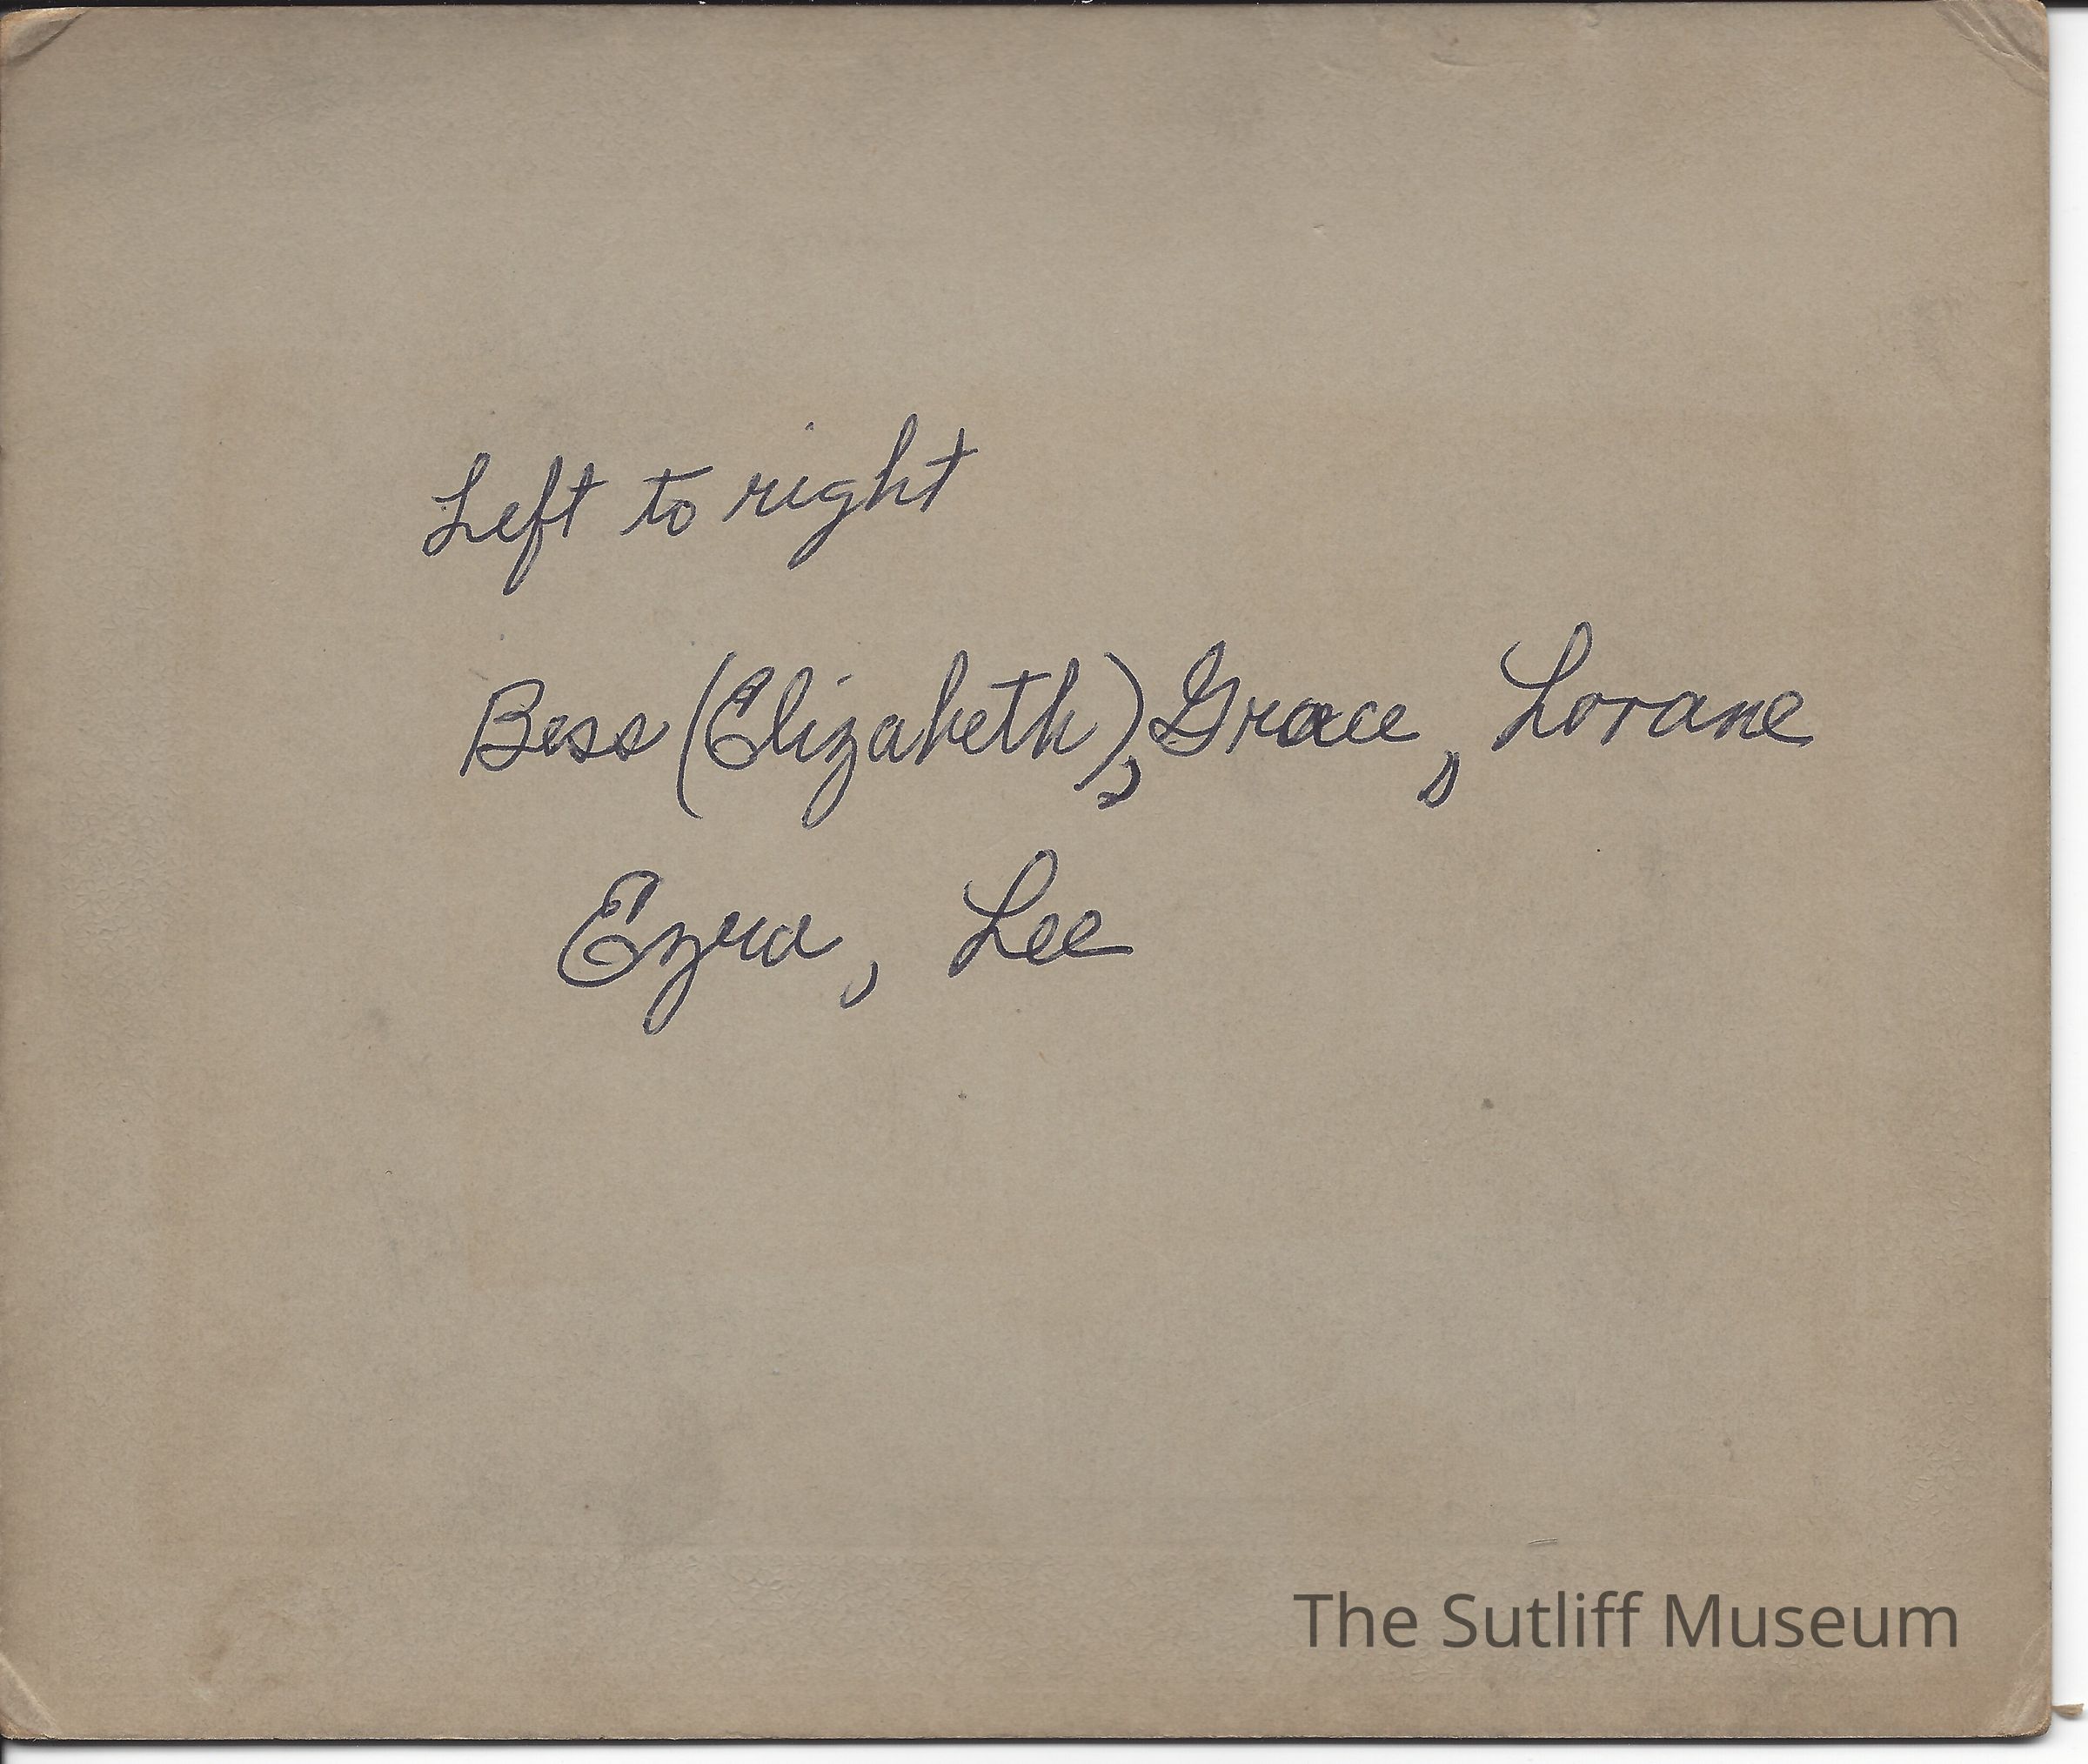 Left to right
Bess (Elizabeth), Grace, Lorane
Ezra, Lee
The Sutliff Museum